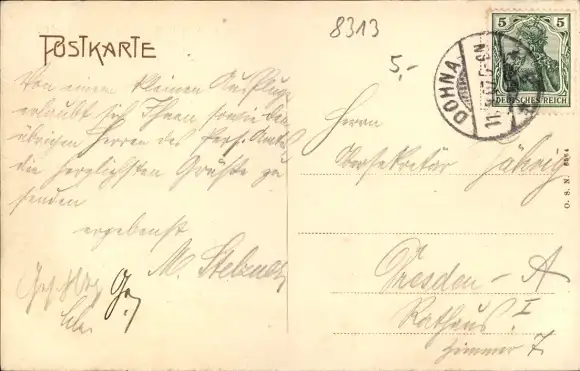 8313
5,-
POSTKARTE
5 5
DEUTSCHES REICH
DOHNA
11.
Von einem kleinen Ausfluge
erlaubt sich Ihnen sowie den
übrigen Herren des
die herzlichsten Grüße zu
senden
ergebenst
M.
Herrn
Obersekretär Jährig
Dresden - A
Rathaus I
Zimmer 7
O. S. N.